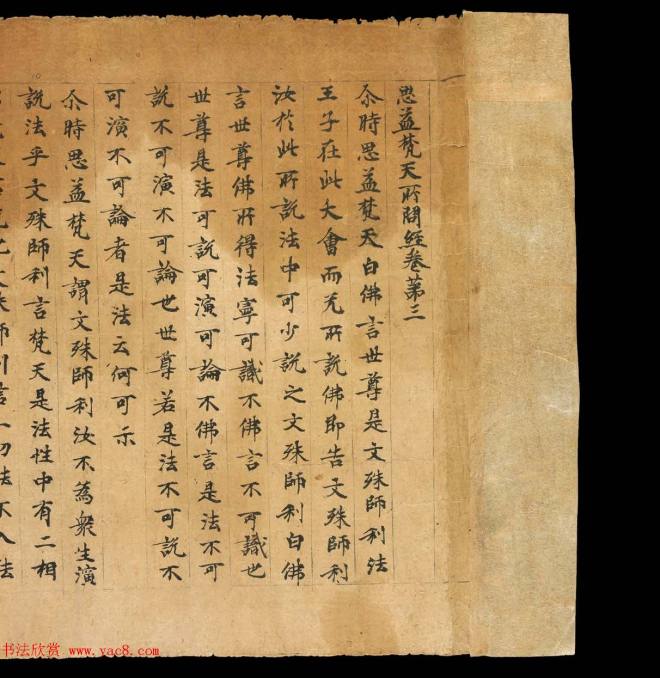 思益梵天所問經卷第三
尒時思益梵天白佛言世尊是文殊師利法
王子在此大會而无所說佛即告文殊師利
汝於此所說法中可少說之文殊師利白佛
言世尊佛所得法寧可識不佛言不可識也
世尊是法可說可演可論不佛言是法不可
說不可演不可論也世尊若是法不可說不
可演不可論者是法云何可示
尒時思益梵天謂文殊師利汝不為衆生演
說法乎文殊師利言梵天是法性中有二相
殊師利言一切法不入法
书法欣赏 www.yac8.com